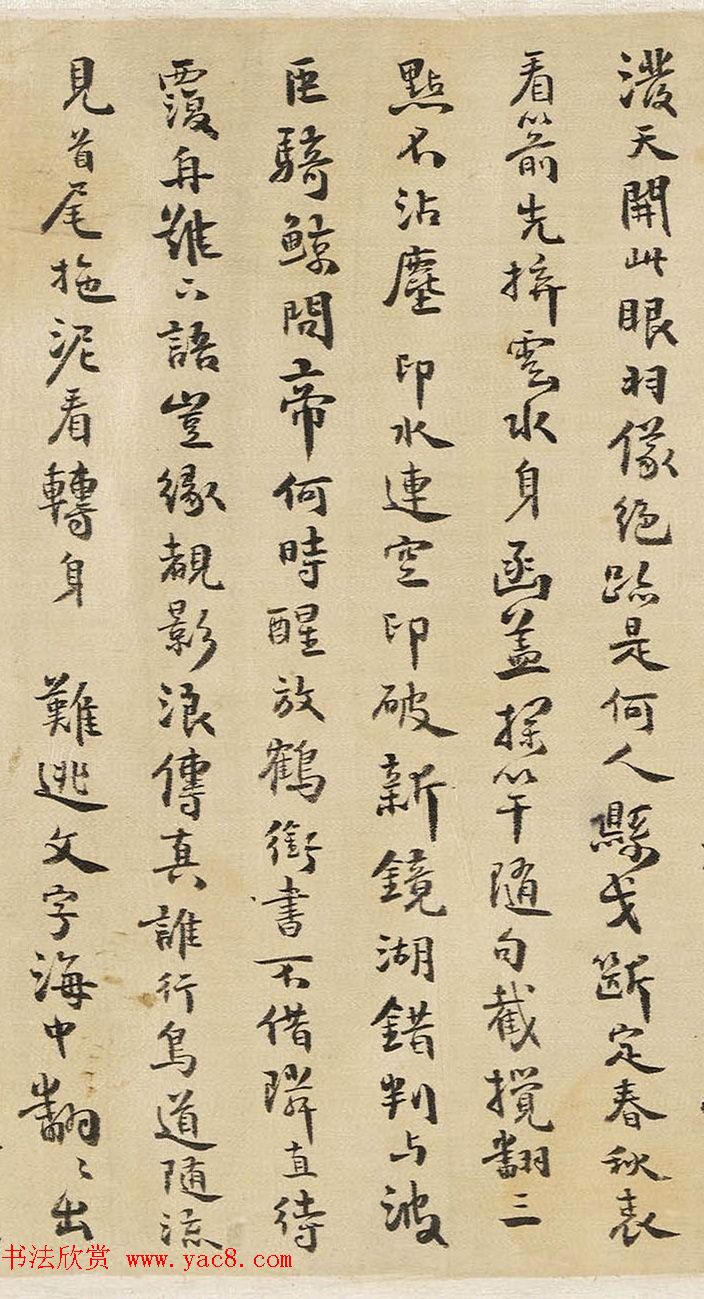 潑天開此眼羽儀絕跡是何人懸戈斷定春秋表
看箭先擠雲水身函蓋探竿隨句截攪翻三
點不沾塵 印水連空印破新鏡湖錯判与波
臣騎鯨問帝何時醒放鶴銜書不借隣直待
覆舟難下語豈緣覩影浪傳真誰行鳥道隨流
見首尾拖泥看轉身 難逃文字海中翻〻出
书法欣赏 www.yac8.com